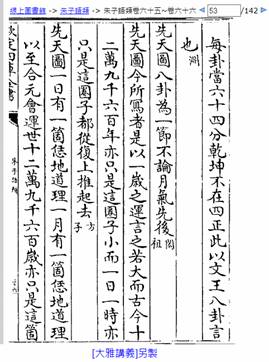 線上圖書館 -> 朱子語類 -> 朱子語類卷六十五~卷六十六
53
/142
每卦當六十四分乾坤不在四正此以文王八卦言
也 淵
先天圖八卦為一節不論月氣先後 閎祖
先天圖今所寫者是以一歲之運言之若大而古今十
二萬九千六百年亦只是這圈子小而一日一時亦
只是這圈子都從復上推起去 方子
先天圖一日有一箇恁地道理一月有一箇恁地道理
以至合元會運世十二萬九千六百歲亦只是這箇
朱子語類
[大雅講義]另製